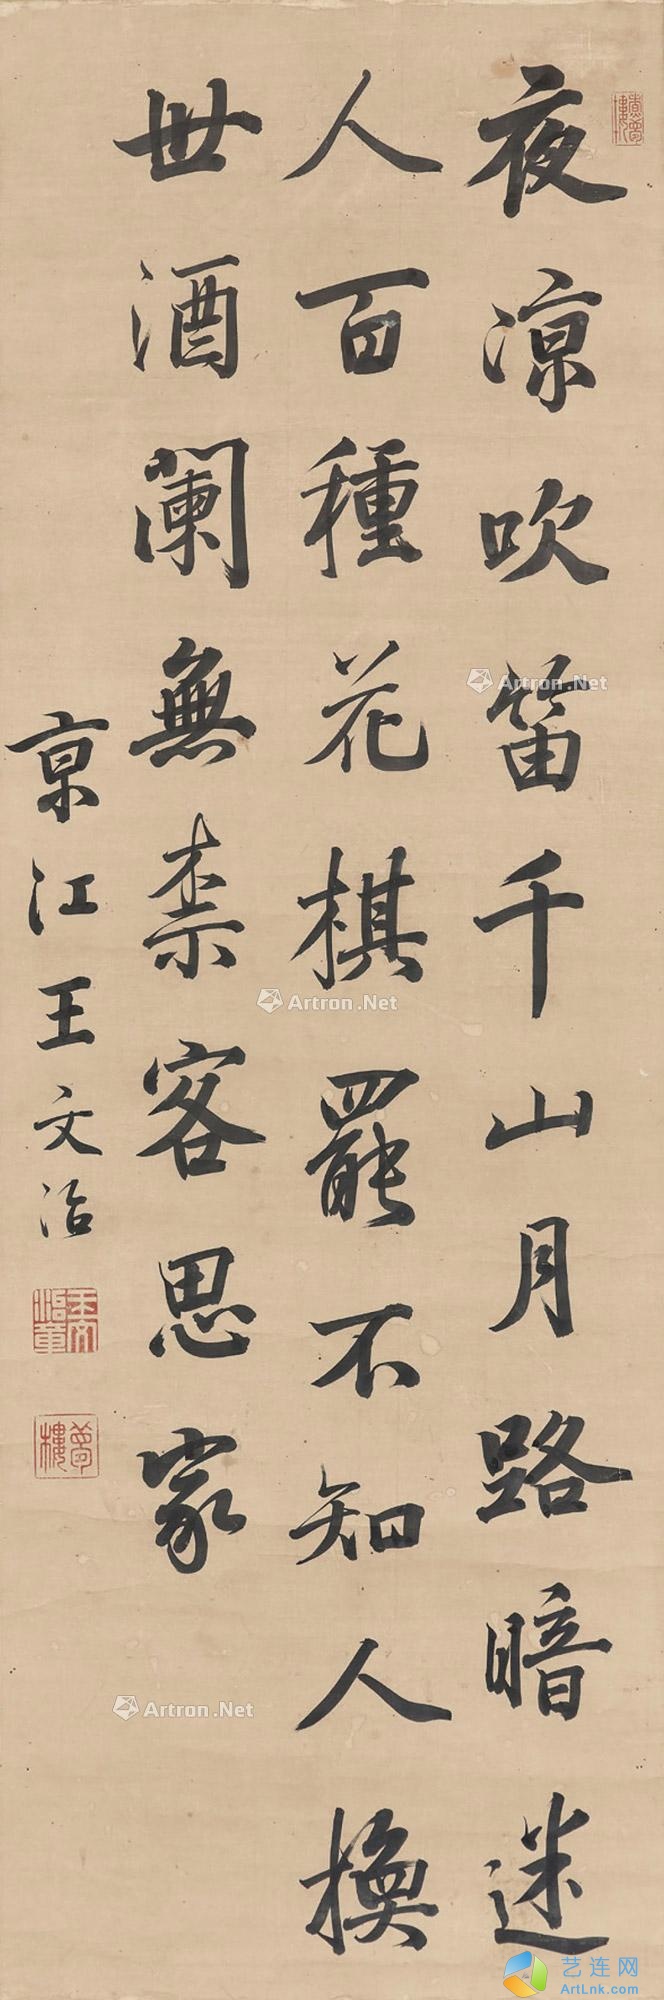 夜涼吹笛千山月路暗迷
人百種花棋罷不知人換
世酒闌無柰客思家
京江王文治
王文治章
夢樓
Artron.Net
Artron.Net
Artron.Net
艺连网
ArtLnk.com